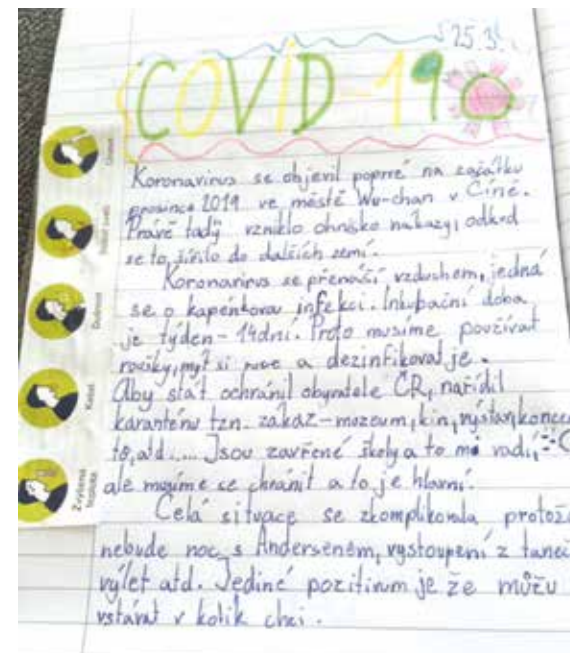 25.3.
COVID-19
Koronavirus se objevil poprvé na začátku
prosince 2019 ve městě Wu-chan v Číně.
Právě tady vzniklo ohnisko nákazy, odkud
se to šířilo do dalších zemí.
Koronavirus se přenáší vzduchem, jedná
se o kapénkovou infekci. Inkubační doba
je týden - 14dní. Proto musíme používat
roušky, mýt si ruce a dezinfikovat je.
Aby stát ochránil obyvatele ČR, nařídil
karanténu tzn. zákaz - muzeum, kin, výstav, konce
tě, atd.... Jsou zavřené školy a to mi vadí,
ale musíme se chránit a to je hlavní.
Celá situace se zkomplikovala protož
nebude noc s Andersenem, vystoupení z taneč
výlet atd. Jediné pozitivum je že můžu
vstávat v kolik chci.
Únava
Dušnost
Kašel
Zvýšená
teplota